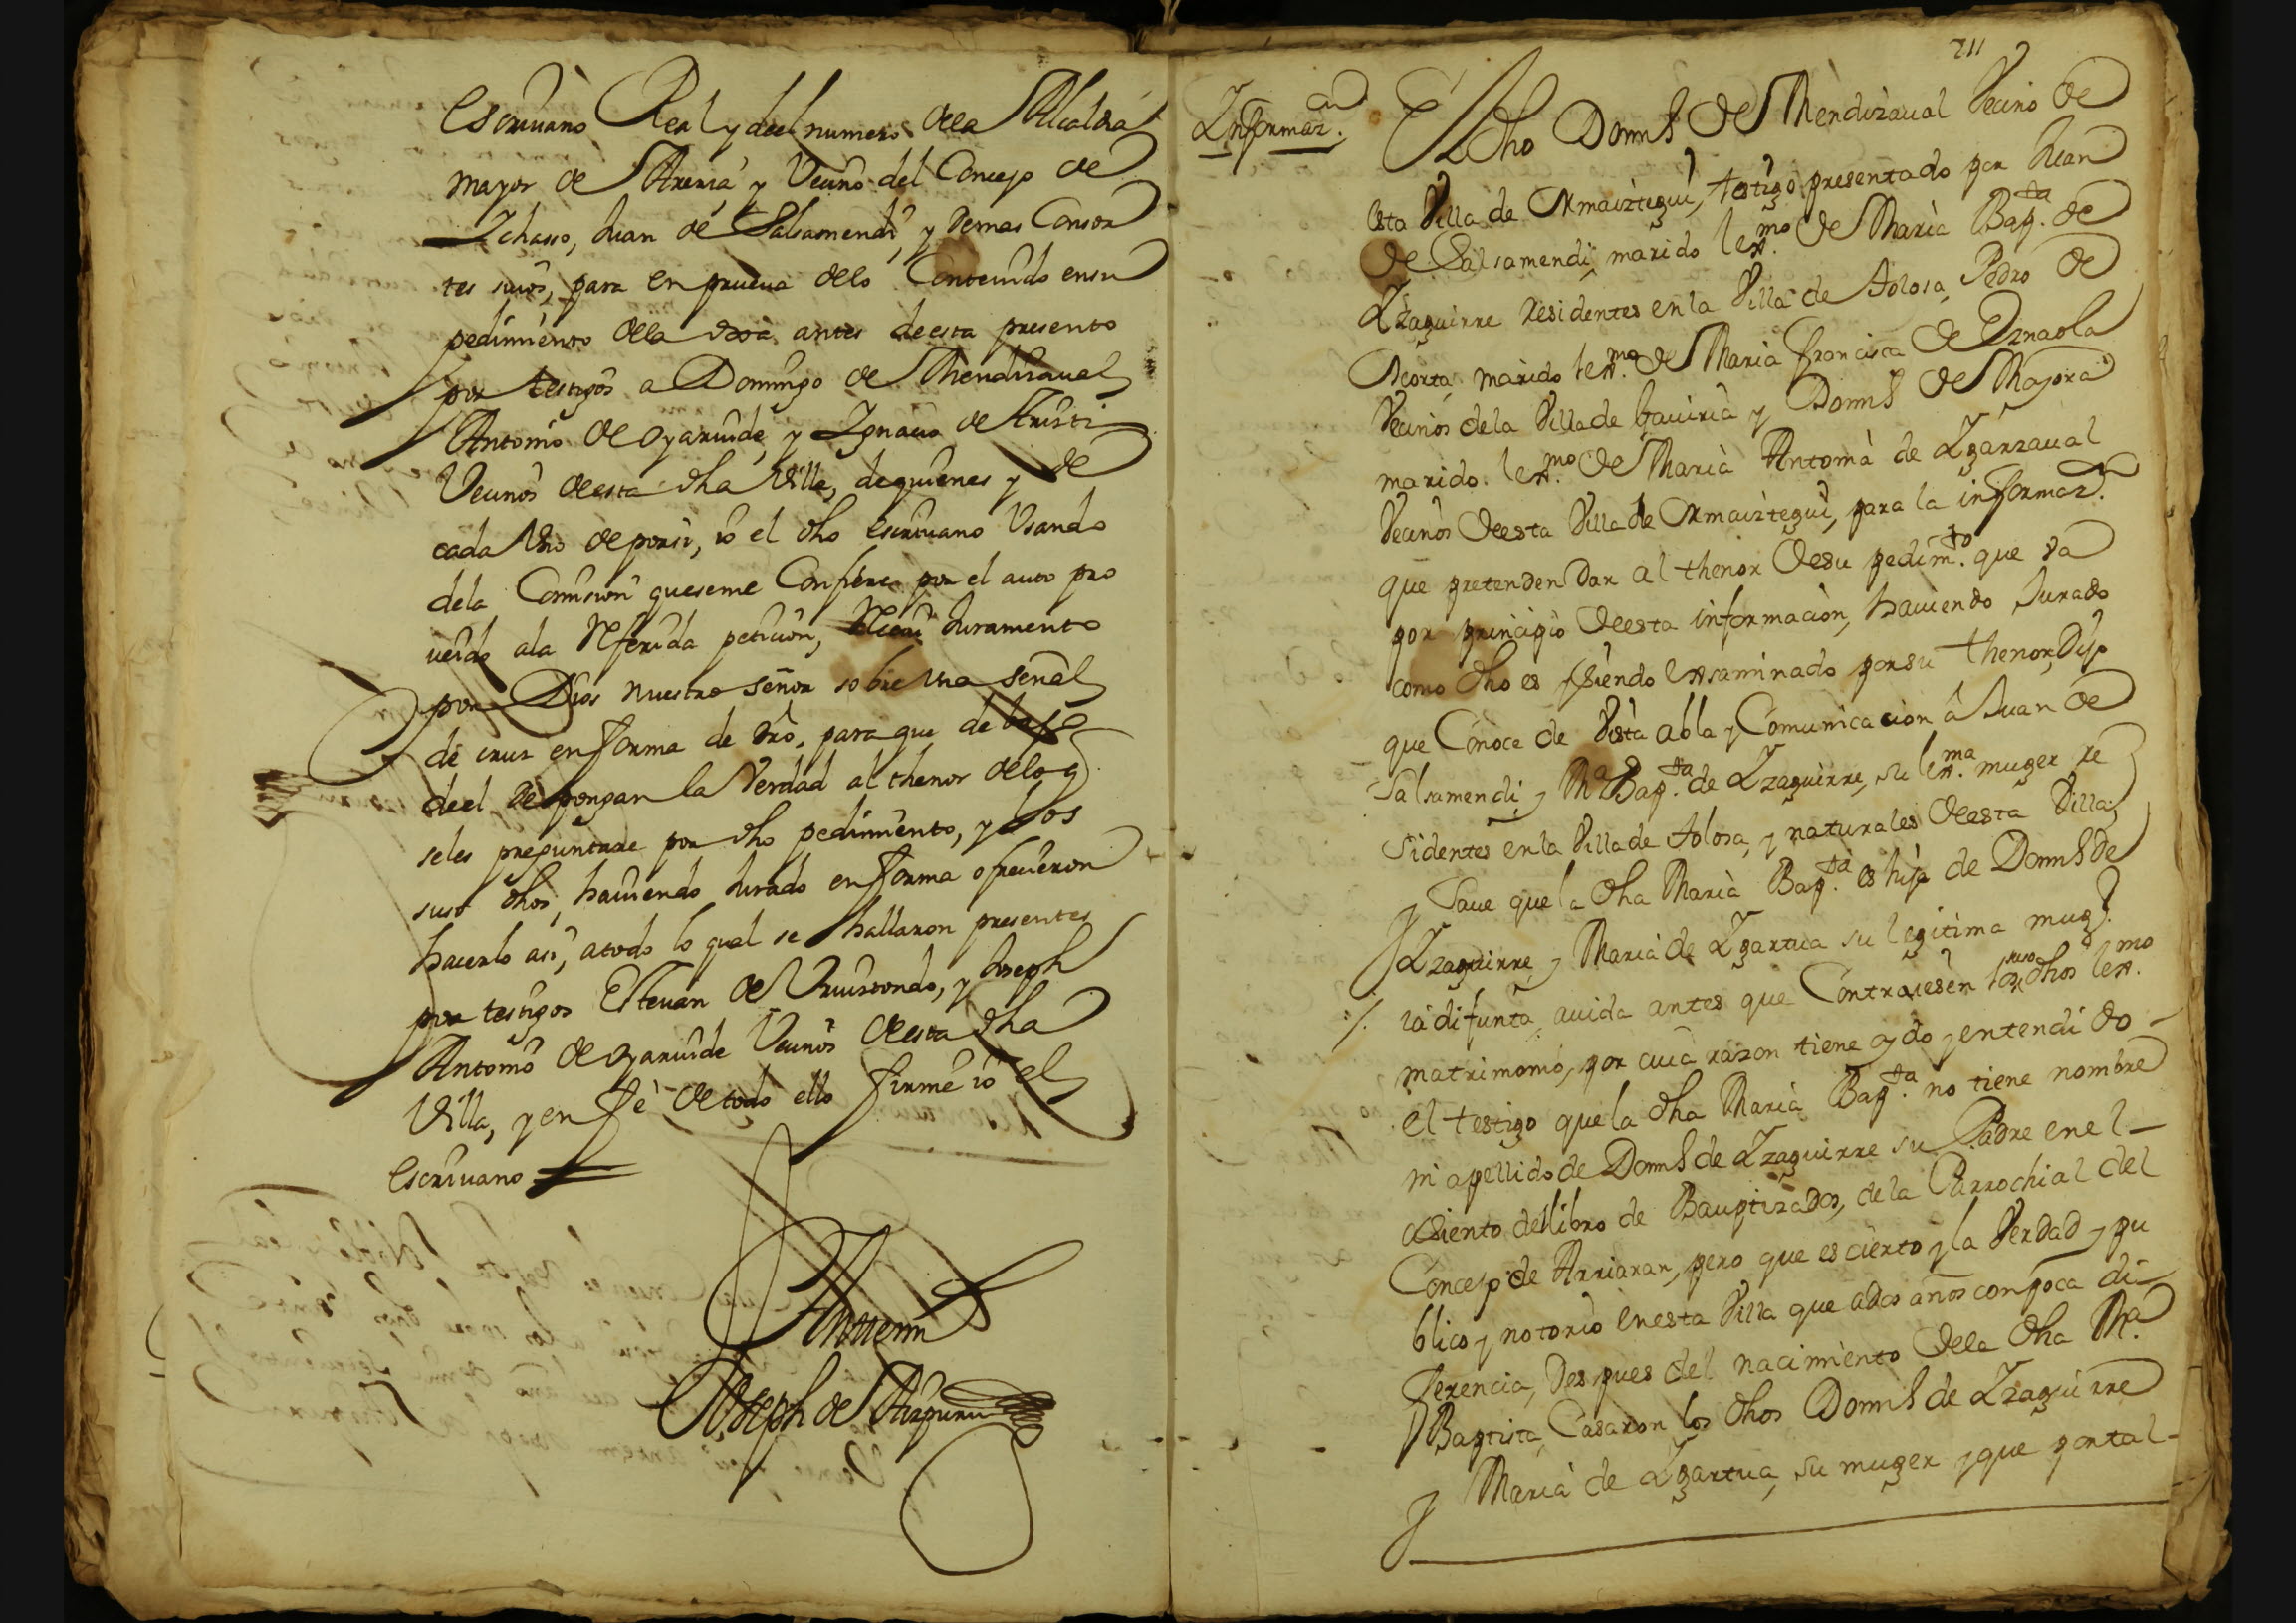 Escriuano Real y deel numero dela Alcaldia
mayor de Areria y Vecino del Concejo de
Ychasso, Juan de Salsamendi, y demas Consor
tes suios, para en prueua delo Contenido en su
pedimiento dela ôxa antes de esta presento
por testigos a Domingo de Mendizaual
Antonio de Oyaruide, y Ygnacio de Aristi
Vecinos de esta dha Villa, de quienes y de
cada Vno de por si, io el dho escriuano Vsando
dela Comision que se me Confiere por el auto pro
ueido ala Referida peticion, Reciui Juramento
por Dios nuestro señor sobre Vna señal
de cruz en forma de dro, para que de bajo
de el depongan la Verdad al thenor delo q
seles preguntare por dho pedimiento, y los
suso dhos, hauiendo Jurado en forma ofrecieron
hacerlo asi, atodo lo qual se hallaron presentes
por testigos Esteuan de Vruistondo, y Joseph
Antonio de Oyaruide Vecinos de esta dha
Villa, y en fe de todo ello firmé io el
Escriuano
Antemi
Joseph de Aizpuru
211
Ynformaz.on
El dho Dom.o de Mendizaual Vecino de
esta Villa de Ormaiztegui, testigo presentado por Juan
de Salsamendi, marido lex.mo de Maria Bap.ta de
Yzaguirre residentes en la Villa de Tolosa, Pedro de
Acorta, marido lex.mo de Maria Francisca de Arnaola
Vecinos dela Villa de Gauiria y Dom.o de Majora
marido lex.mo de Maria Antonia de Ygarzaual
Vecinos de esta Villa de Ormaiztegui, para la informaz.on
que pretenden Dar al thenor de su pedim.to que va
por principio de esta informacion, hauiendo Jurado
como dho es y siendo exsaminado por su thenor, Dijo
que Conoce de Vista abla y Comunicacion â Juan de
Salsamendi y M.a Bap.ta de Yzaguirre, su lex.ma muger re
sidentes en la Villa de Tolosa, y naturales de esta Villa,
y saue que la dha Maria Bap.ta es hija de Dom.o de
Yzaguirre, y Maria de Ygartua su legitima mug.r
ia difunta, auida antes que Contrajesen los suso dhos lex.mo
matrimonio, por cuia razon tiene oydo y entendido
el testigo que la dha Maria Bap.ta no tiene nombre
ni apellido de Dom.o de Yzaguirre su Padre en el
asiento del libro de Bauptizados, dela Parrochial del
Concejo de Arriaran, pero que es cierto y la Verdad y pu
blico y notorio en esta Villa que a dos años con poca di
ferencia, Despues del nacimiento dela dha M.a
Baptista, Casaron los dhos Dom.o de Yzaguirre
y Maria de Ygartua, su muger y que por tal